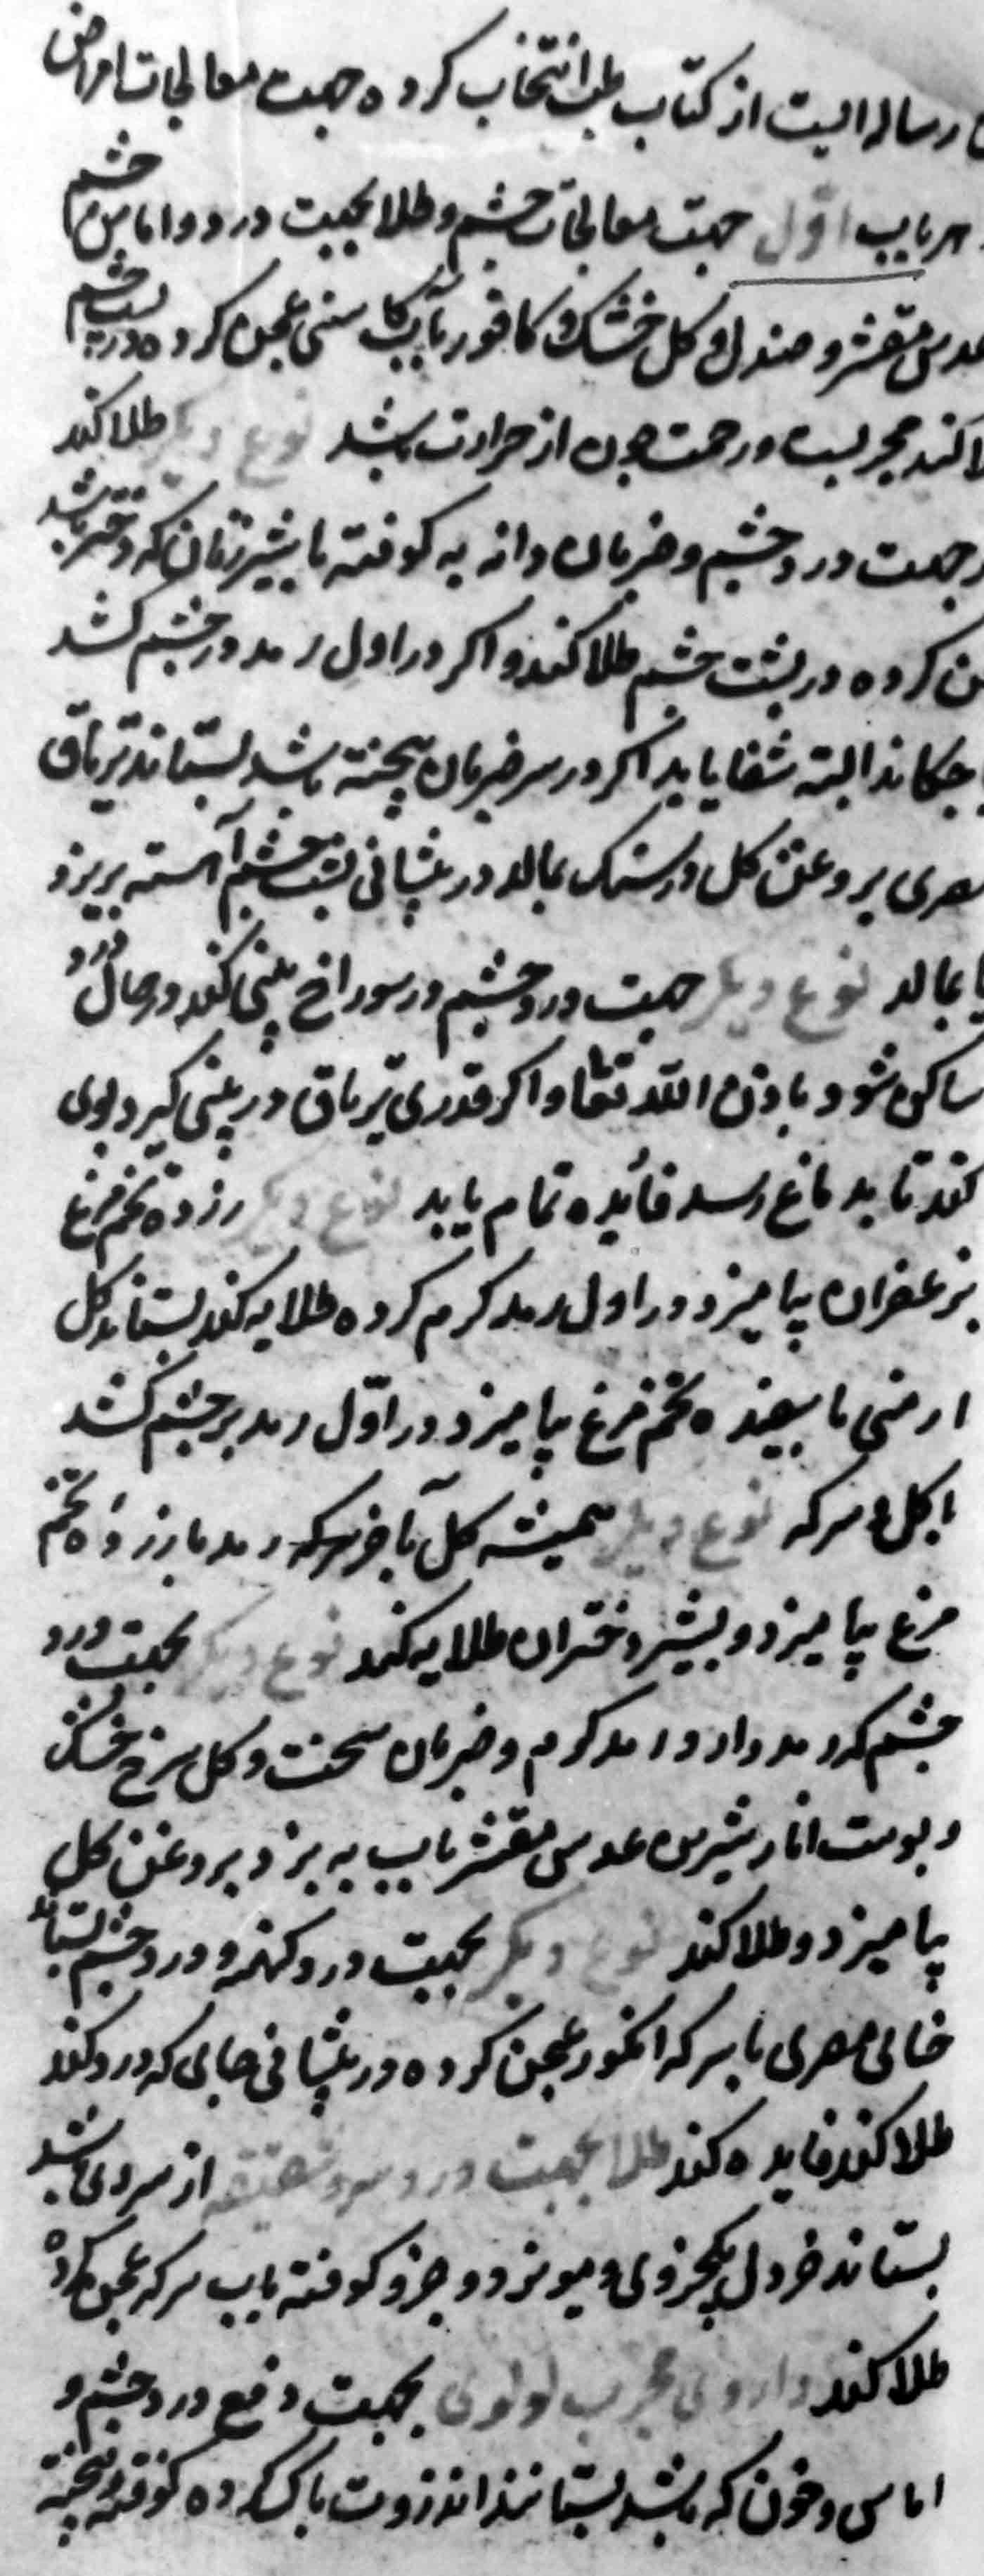 رساله ایست از کتاب طب انتخاب کرده جهت معالجات امراض
باب اول جهت معالجات چشم و طلا بجهت درد و اماس چشم
عدس مقشر و صندل و کل خشک و کافور بآب کاسنی عجین کرده در پشت چشم
کند مجربست در حمت چون از حرارت باشد نوع دیکر طلا کند
جهت درد چشم و ضربان دانه به کوفته با شیر زنان که دختر باشد
کرده در پشت چشم طلا کند و اکر در اول رمد در چشم کشد
چکاند البته شفا یابد اکر در سر ضربان پیچیده باشد بستاند تریاق
مصری بروغن کل در سنک بمالد در پیشانی پشت چشم آهسته بریزد
بمالد نوع دیکر جهت درد چشم در سوراخ بینی کند در حال درد
ساکن شود باذن الله تعا و اکر قدری تریاق در بینی کیرد بوی
کند تا بدماغ رسد فائده تمام یابد نوع دیکر زرده تخم مرغ
بزعفران بیامیزد در اول رمد کرم کرده طلایه کند بستاند کل
ارمنی با سفیده تخم مرغ بیامیزد در اول رمد بر چشم کشد
با کل و سرکه نوع دیکر همیشه کل تا آخر رمد با زرده تخم
مرغ بیامیزد و بشیر دختران طلایه کند نوع دیکر بجهت درد
چشم که رمد دارد رمد کرم و ضربان سخت و کل سرخ خشک
و پوست انار شیرین عدس مقشر بآب به پزد بروغن کل
بیامیزد و طلا کند نوع دیکر بجهت درد کهنه و درد چشم بستاند
مصری با سرکه انکور عجین کرده در پیشانی جای که درد کند
طلا کند فایده کند طلا بجهت درد سر و شقیقه از سردی باشد
بستاند خردل یکجزوی و میویز دو جزو کوفته بآب سرکه عجین کرده
طلا کند داروی مجرب لولوی بجهت دفع درد چشم و
اماس و خون که باشد بستانند انزروت پاک کرده کوفته و بیخته